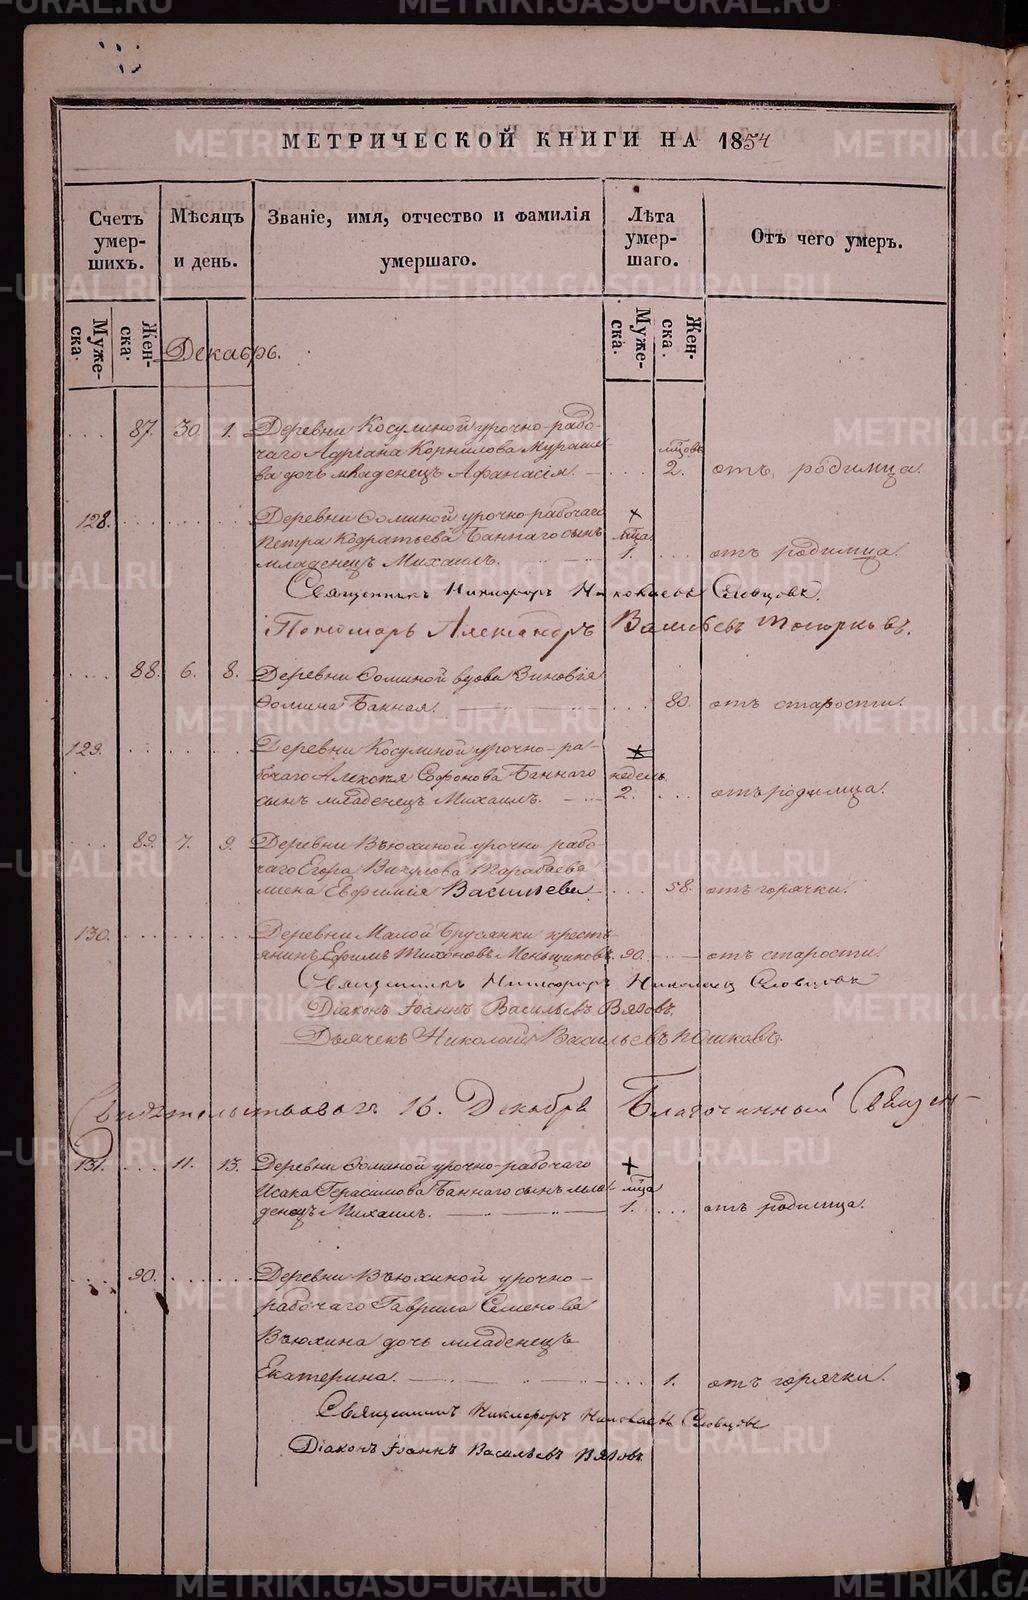 МЕТРИЧЕСКОЙ КНИГИ НА 1854
Счетъ умер- шихъ.
Мѣсяцъ и день.
Званіе, имя, отчество и фамилія умершаго.
Лѣта умер- шаго.
Отъ чего умеръ.
Муже- ска.
Жен- ска.
Муже- ска.
Жен- ска.
Декабрь.
87. 30. 1. Деревни Косулиной урочно-рабо-
чаго Адріана Корнилова Мураше мцовъ
ва дочь младенецъ Афанасія. 2. отъ родимца.
128. Деревни Ѳоминой урочно-рабочаго
Петра Кодратьева Баннаго сынъ мца
младенецъ Михаилъ. 1. отъ родимца.
Священникъ Никифоръ Николаевъ Словцовъ.
Пономарь Александръ
88. 6. 8. Деревни Ѳоминой вдова Зиновія
Ѳомина Банная. 80. отъ старости.
129. Деревни Косулиной урочно-ра-
бочаго Алексѣя Софонова Баннаго недель
сынъ младенецъ Михаилъ. 2. отъ родимца.
89. 7. 9. Деревни Въюхиной урочно рабо-
чаго Егора Викулова Тарабаева
жена Евфимія Васильева 58. отъ горячки.
130. Деревни Малой Брусянки кресть-
янинъ Ефимъ Тихоновъ Меньщиковъ. 90. отъ старости.
Священникъ Никифоръ Николаевъ Словцовъ
Діаконъ Іоаннъ Васильевъ Вяговъ.
Дьячекъ Николай Васильевъ Юшковъ.
Свидѣтельствовалъ 16. Декабря Благочинный Священ-
131. 11. 13. Деревни Ѳоминой урочно-рабочаго
Исака Герасимова Баннаго сынъ мла мца
денецъ Михаилъ. 1. отъ родимца.
90. Деревни Въюхиной урочно-
рабочаго Гаврила Семенова
Въюхина дочь младенецъ
Екатерина. 1. отъ горячки.
Священникъ Никифоръ Николаевъ Словцовъ
Діаконъ Іоаннъ Васильевъ Вяговъ
METRIKI.GASO-URAL.RU